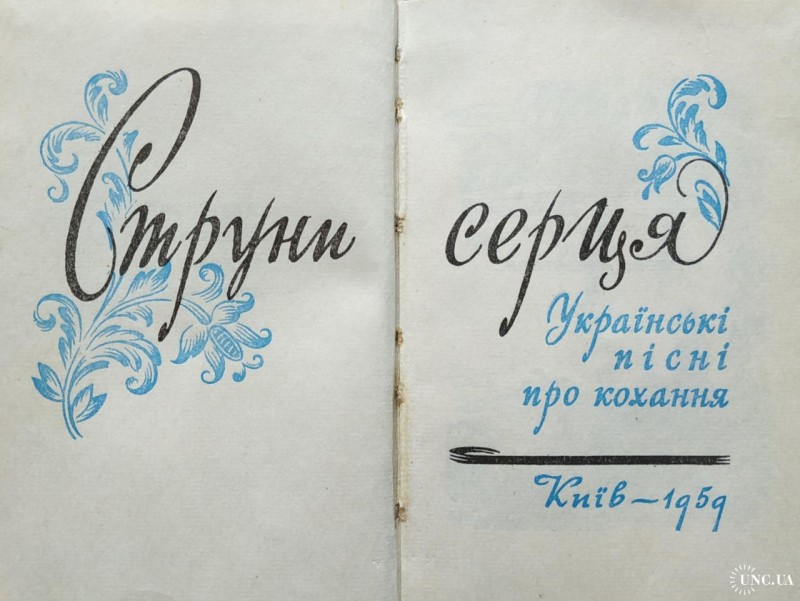 Струни серця
Українські
пісні
про кохання
Київ — 1959
UNC.UA